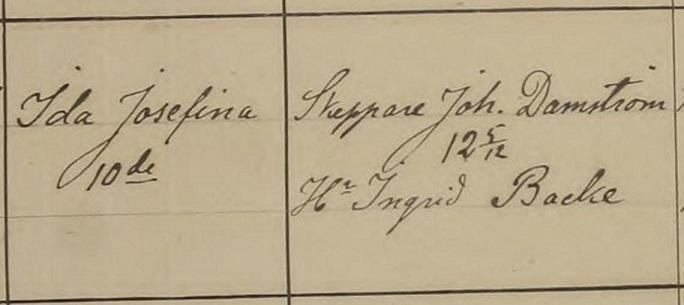 Ida Josefina
10 de
Skeppare Joh. Damström
12 5/12
Hr Ingrid Backe